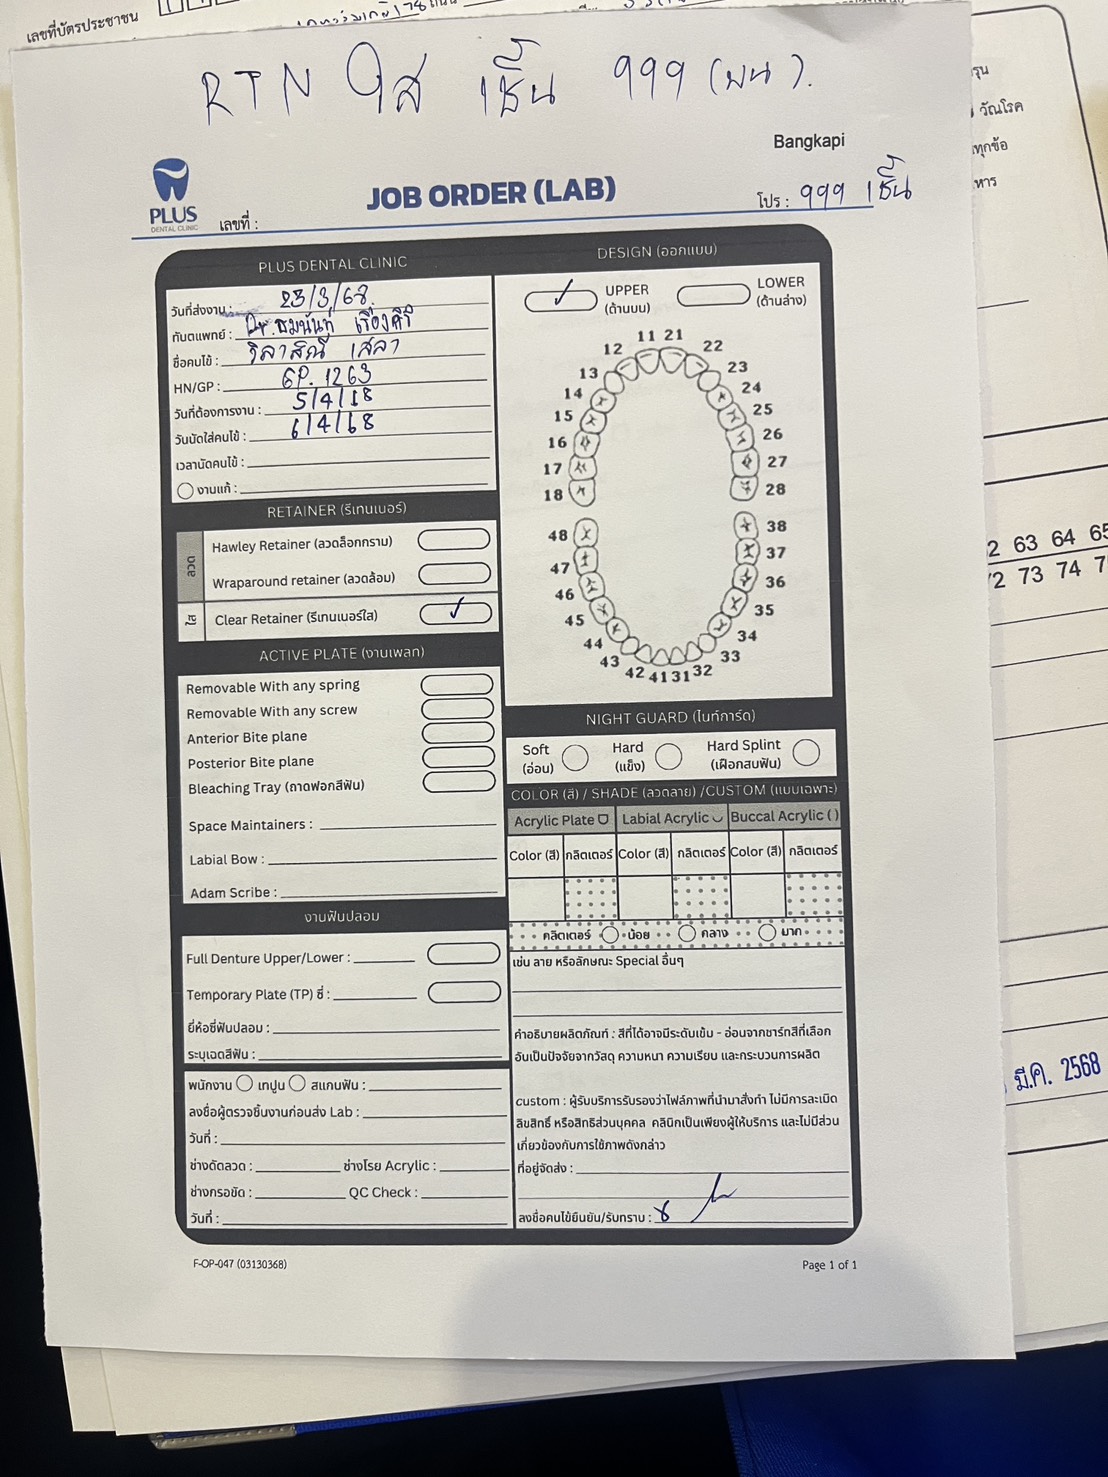 เลขที่บัตรประชาชน
RTN ใส ชิ้น 999 (บน).
Bangkapi
PLUS
DENTAL CLINIC
JOB ORDER (LAB)
เลขที่ :
โปร : 999 1ชิ้น
PLUS DENTAL CLINIC
วันที่ส่งงาน : 23/3/68.
ทันตแพทย์ : Dr.
ชื่อคนไข้ : วิลาสิณี เสลา
HN/GP : GP. 1263
วันที่ต้องการงาน : 5/4/68
วันนัดใส่คนไข้ : 6/4/68
เวลานัดคนไข้ :
งานแก้ :
RETAINER (รีเทนเนอร์)
ลวด
Hawley Retainer (ลวดล็อกกราม)
Wraparound retainer (ลวดล้อม)
ใส
Clear Retainer (รีเทนเนอร์ใส)
ACTIVE PLATE (งานเพลท)
Removable With any spring
Removable With any screw
Anterior Bite plane
Posterior Bite plane
Bleaching Tray (ถาดฟอกสีฟัน)
Space Maintainers :
Labial Bow :
Adam Scribe :
งานฟันปลอม
Full Denture Upper/Lower :
Temporary Plate (TP) ซี่ :
ยี่ห้อซี่ฟันปลอม :
ระบุเฉดสีฟัน :
พนักงาน เทปูน สแกนฟัน :
ลงชื่อผู้ตรวจชิ้นงานก่อนส่ง Lab :
วันที่ :
ช่างดัดลวด : ช่างโรย Acrylic :
ช่างกรอขัด : QC Check :
วันที่ :
DESIGN (ออกแบบ)
UPPER
(ด้านบน)
LOWER
(ด้านล่าง)
11 21
12 22
13 23
14 24
15 25
16 26
17 27
18 28
48 38
47 37
46 36
45 35
44 34
43 33
42 41 31 32
NIGHT GUARD (ไนท์การ์ด)
Soft
(อ่อน)
Hard
(แข็ง)
Hard Splint
(เฝือกสบฟัน)
COLOR (สี) / SHADE (ลวดลาย) /CUSTOM (แบบเฉพาะ)
Acrylic Plate Labial Acrylic Buccal Acrylic ( )
Color (สี) กลิตเตอร์ Color (สี) กลิตเตอร์ Color (สี) กลิตเตอร์
กลิตเตอร์ น้อย กลาง มาก
เช่น ลาย หรือลักษณะ Special อื่นๆ
คำอธิบายผลิตภัณฑ์ : สีที่ได้อาจมีระดับเข้ม - อ่อนจากชาร์ทสีที่เลือก
อันเป็นปัจจัยจากวัสดุ ความหนา ความเรียบ และกระบวนการผลิต
custom : ผู้รับบริการรับรองว่าไฟล์ภาพที่นำมาสั่งทำ ไม่มีการละเมิด
ลิขสิทธิ์ หรือสิทธิส่วนบุคคล คลินิกเป็นเพียงผู้ให้บริการ และไม่มีส่วน
เกี่ยวข้องกับการใช้ภาพดังกล่าว
ที่อยู่จัดส่ง :
ลงชื่อคนไข้ยืนยัน/รับทราบ :
F-OP-047 (03130368)
Page 1 of 1
วัณโรค
63 64 65
73 74
มี.ค. 2568